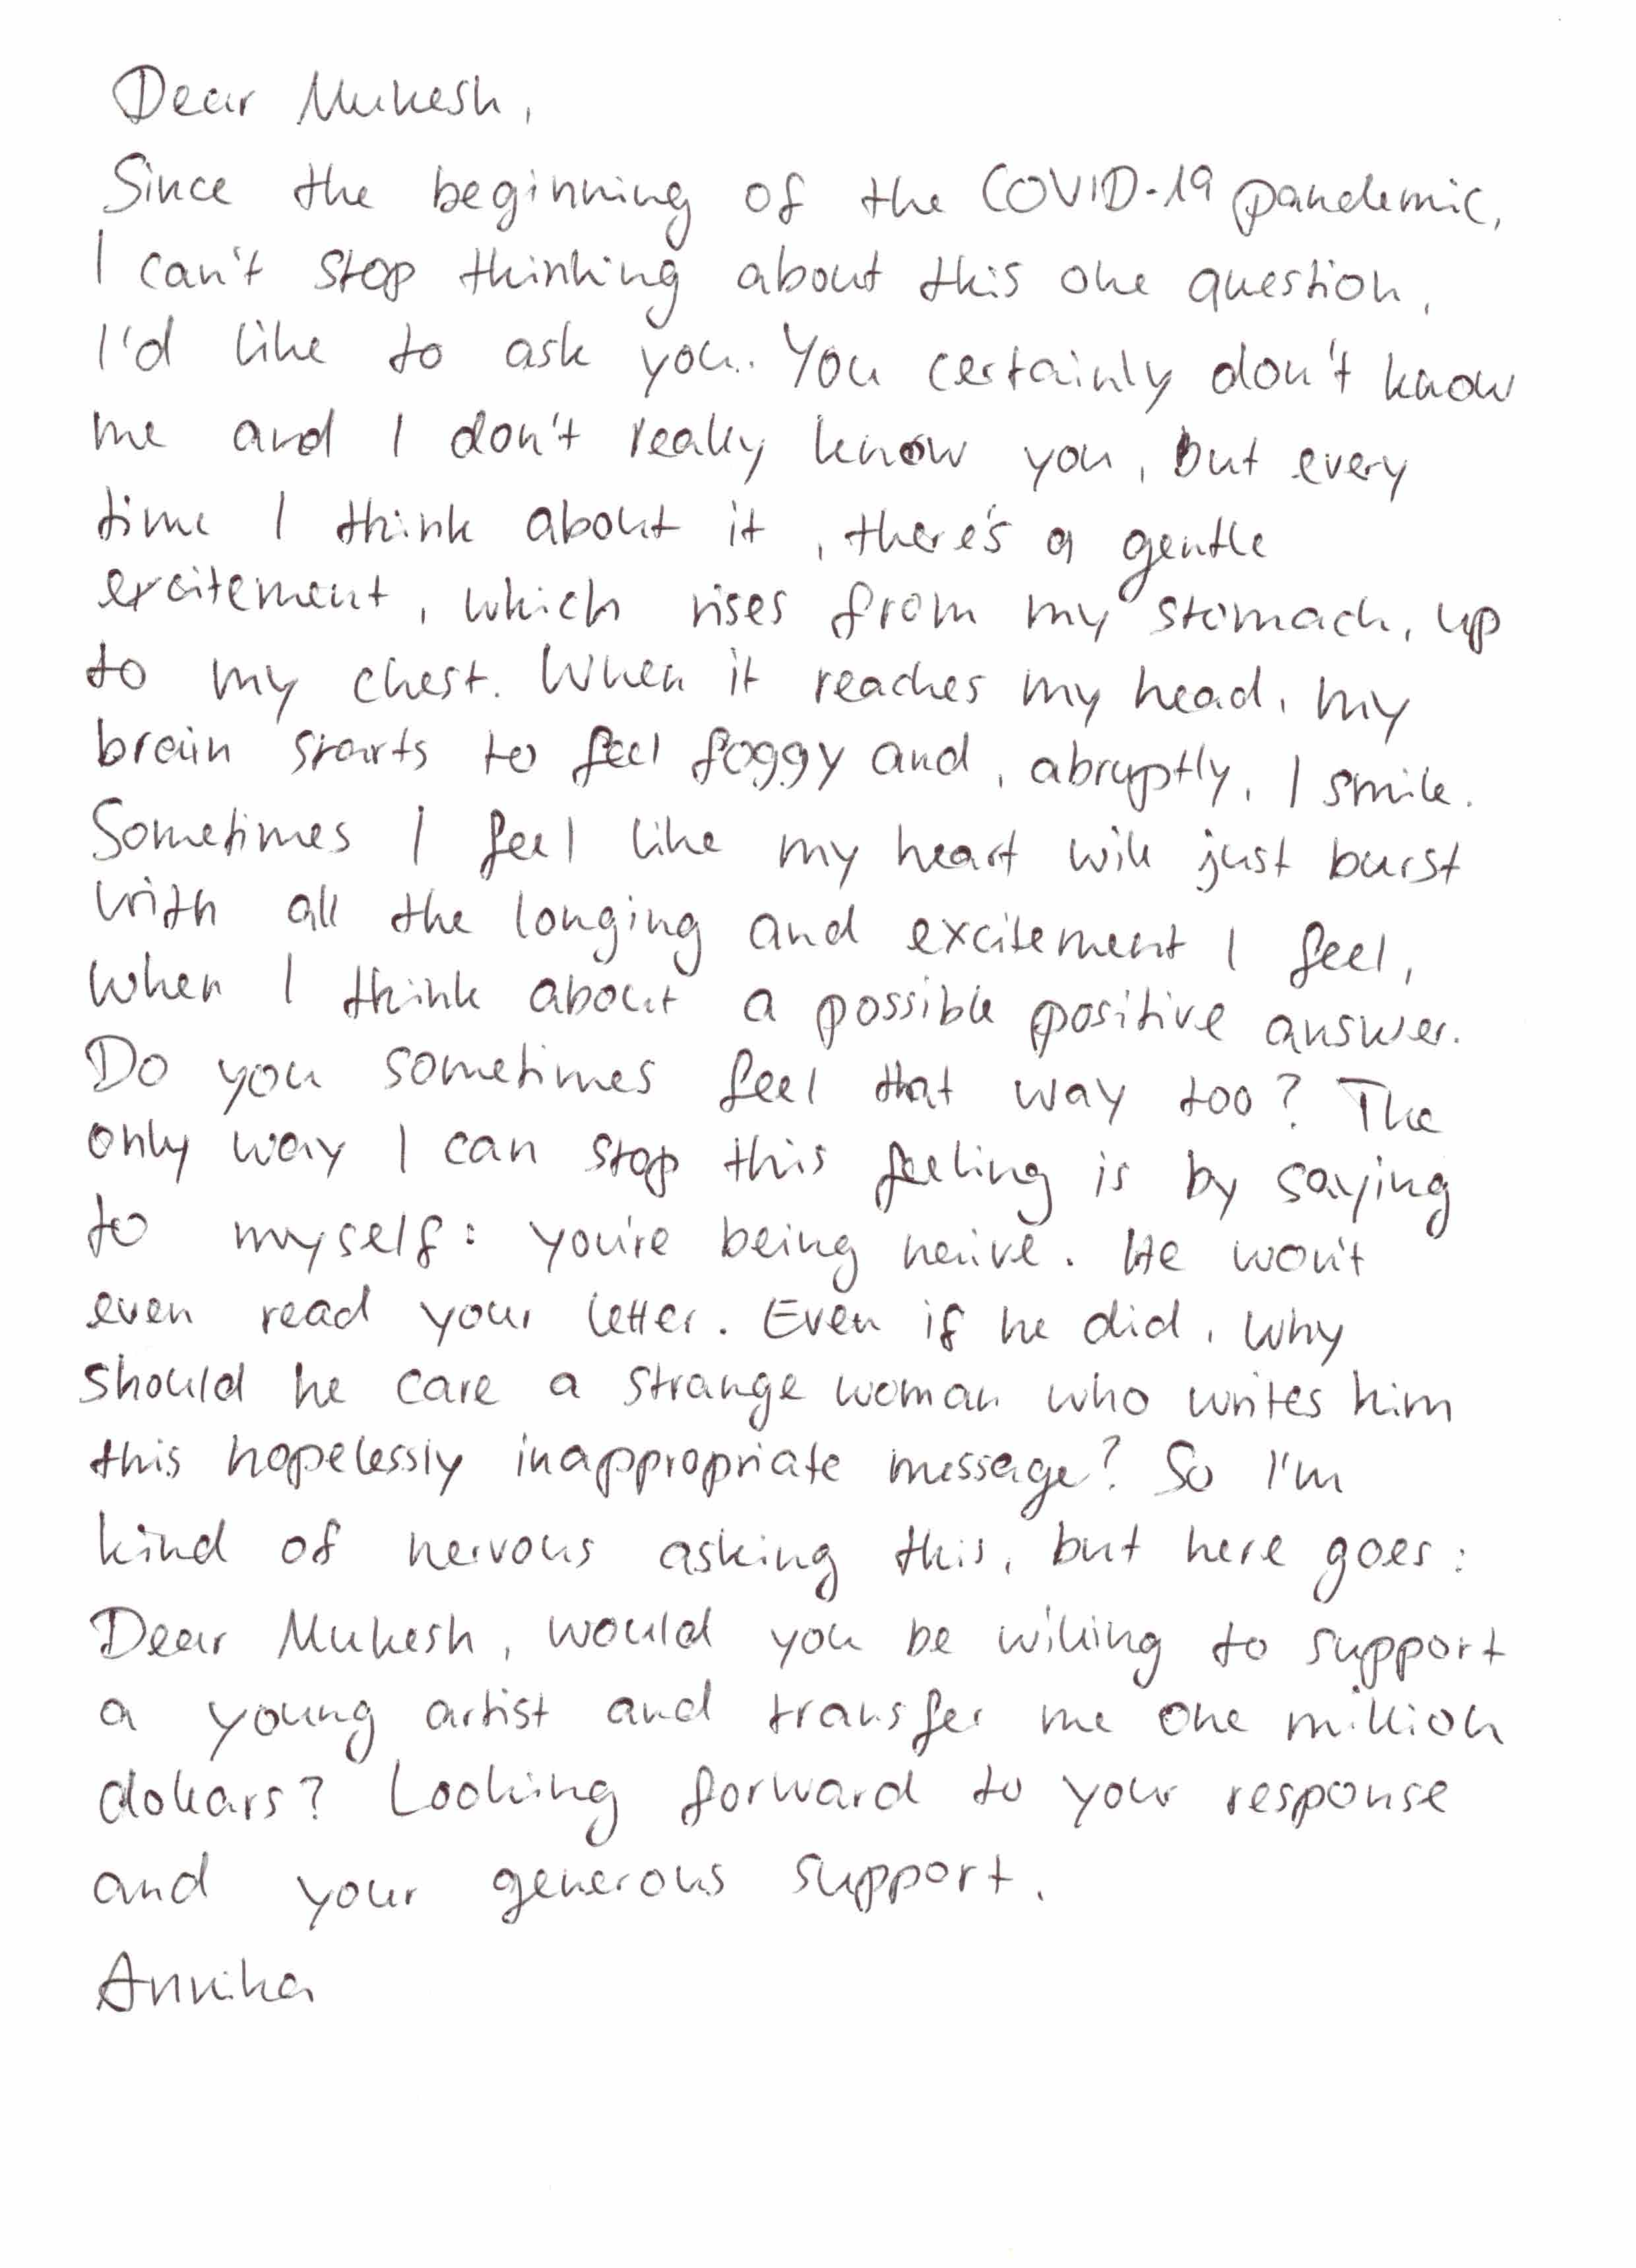 Dear Mukesh,
Since the beginning of the COVID-19 pandemic,
I can't stop thinking about this one question,
I'd like to ask you. You certainly don't know
me and I don't really know you, but every
time I think about it, there's a gentle
excitement, which rises from my stomach, up
to my chest. When it reaches my head, my
brain starts to feel foggy and, abruptly, I smile.
Sometimes I feel like my heart will just burst
with all the longing and excitement I feel,
when I think about a possible positive answer.
Do you sometimes feel that way too? The
only way I can stop this feeling is by saying
to myself: you're being naive. He won't
even read your letter. Even if he did, why
should he care a strange woman who writes him
this hopelessly inappropriate message? So I'm
kind of nervous asking this, but here goes:
Dear Mukesh, would you be willing to support
a young artist and transfer me one million
dollars? Looking forward to your response
and your generous support.
Annika